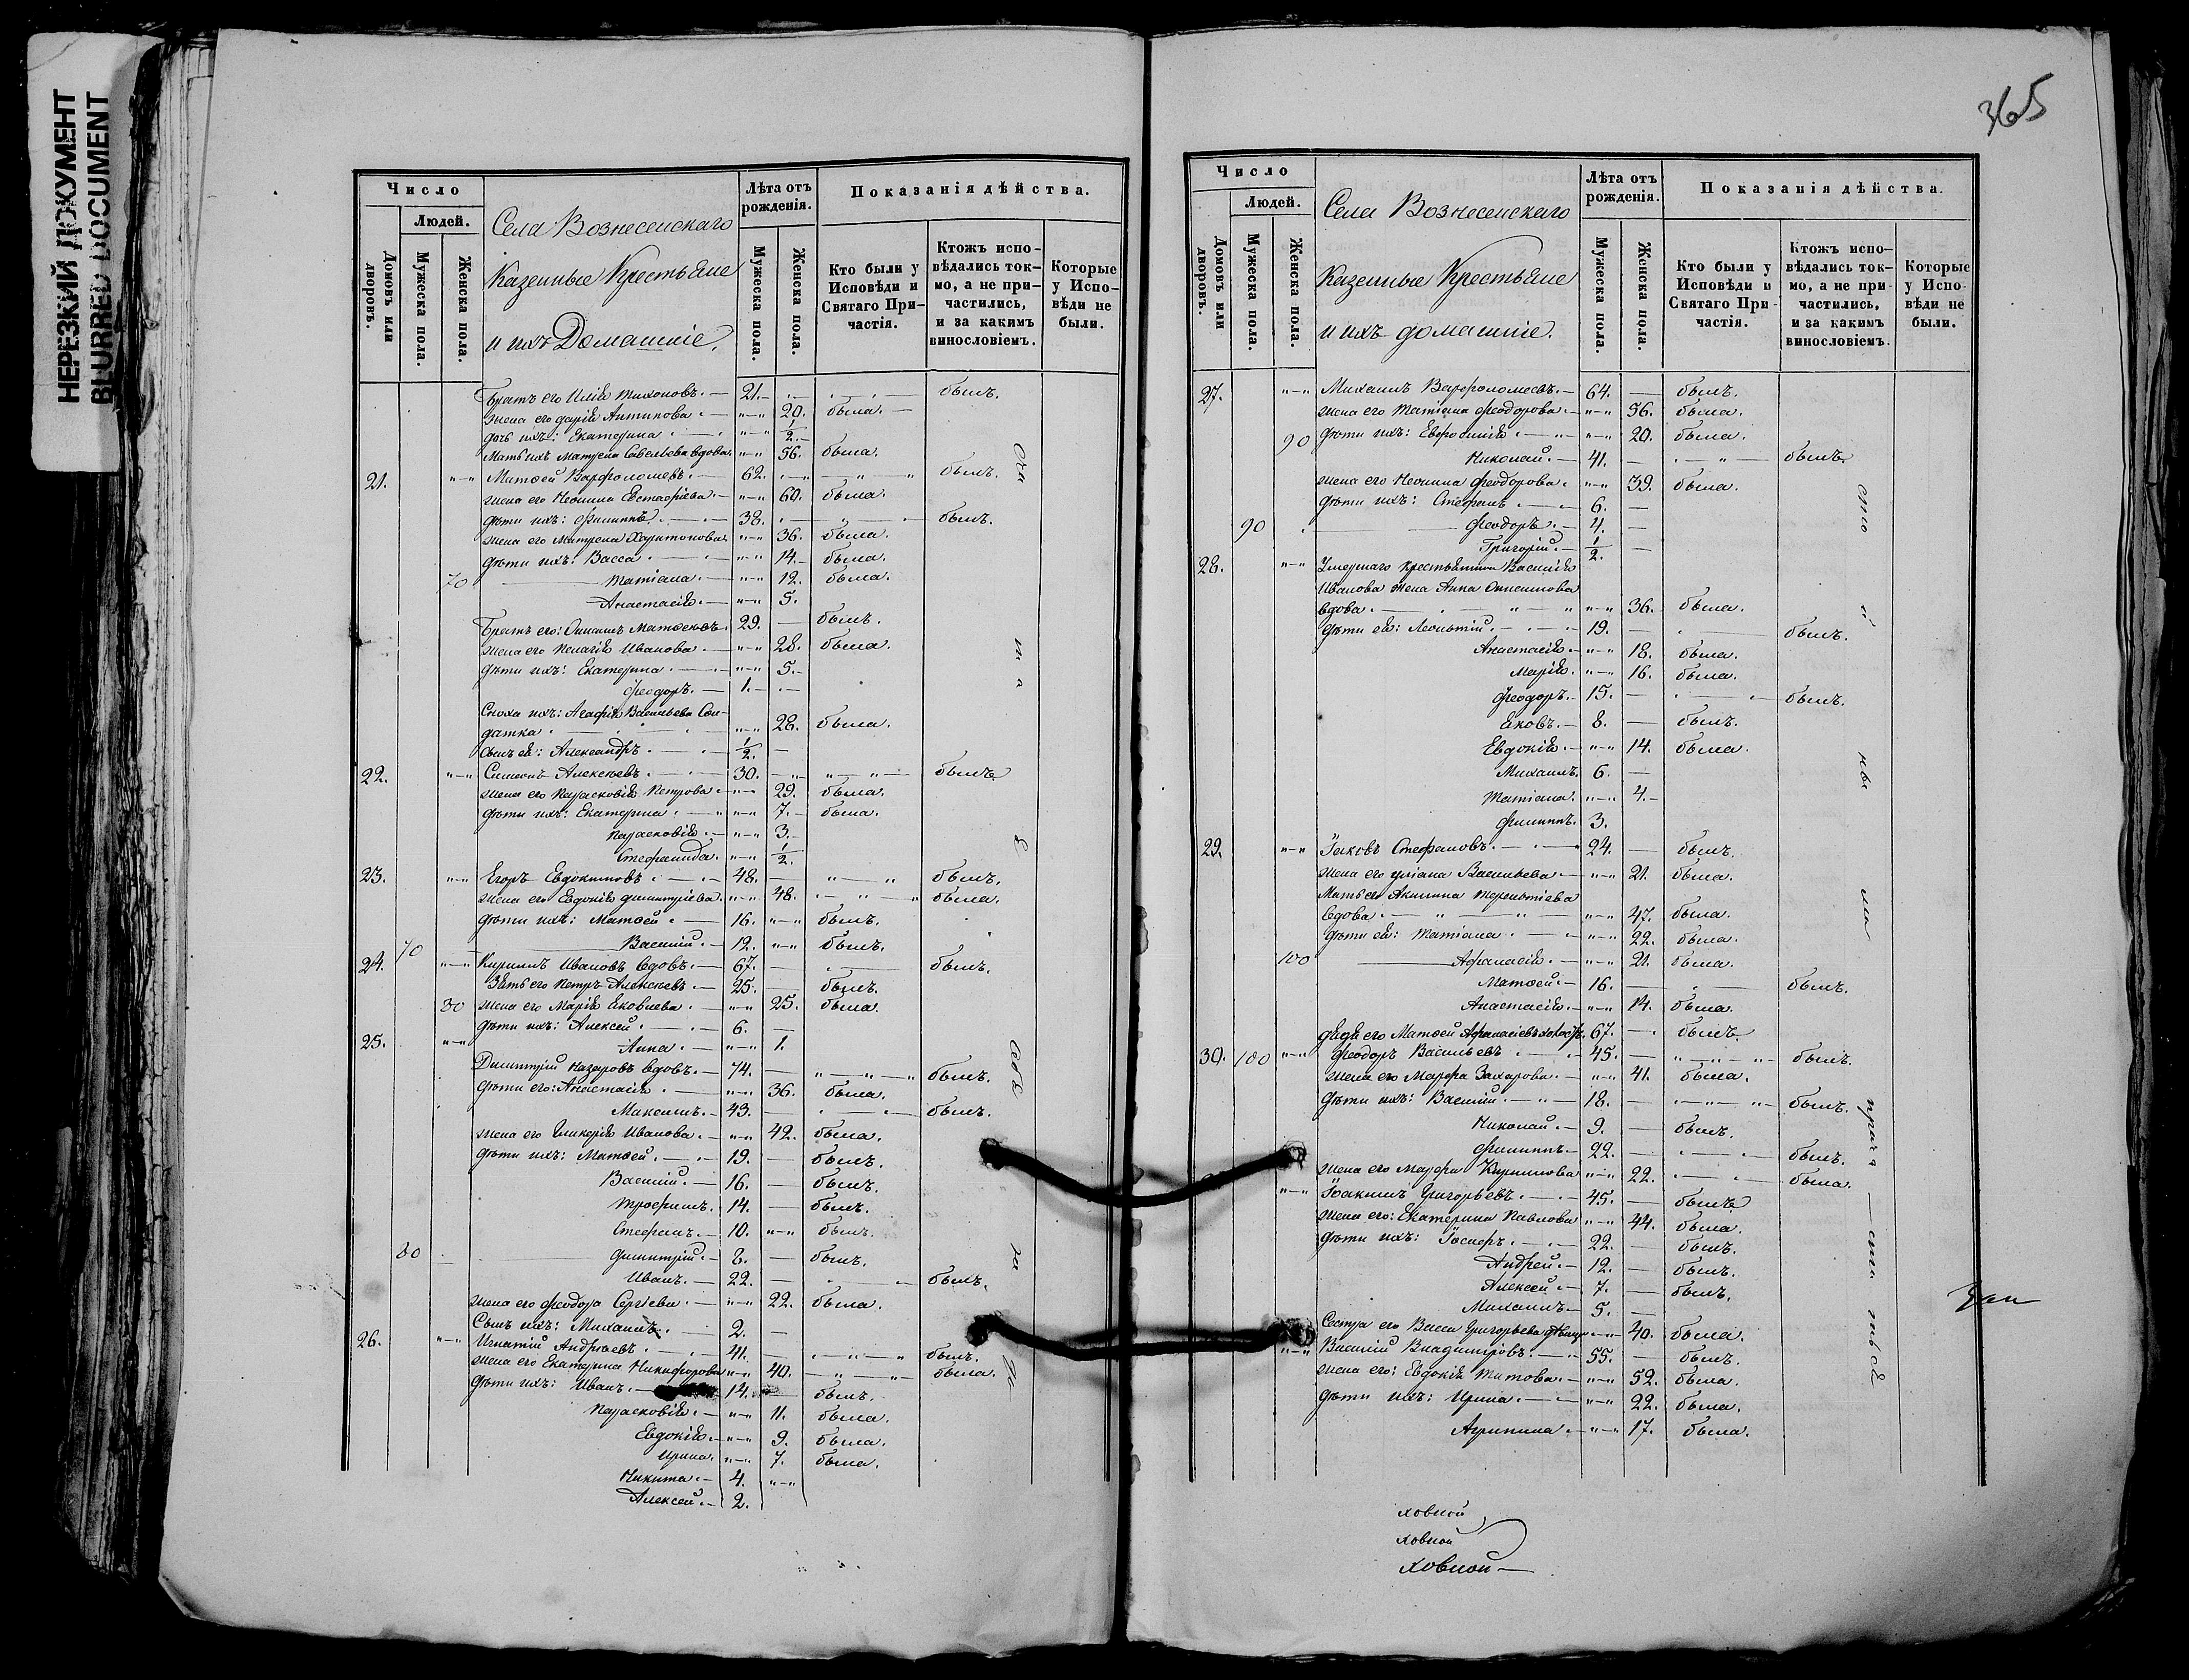 НЕРЕЗКИЙ ДОКУМЕНТ
BLURRED DOCUMENT
Число
Людей.
Домовъ или дворовъ.
Мужеска пола.
Женска пола.
Села Вознесенскаго
Казенные Крестьяне
и ихъ Домашніе.
Лѣта отъ рожденія.
Мужеска пола.
Женска пола.
Показанія дѣйства.
Кто были у Исповѣди и Святаго Причастія.
Ктожъ исповѣдались токмо, а не причастились, и за какимъ винословіемъ.
Которые у Исповѣди не были.
Братъ его Илія Тихоновъ. — 21. былъ.
жена его Дарія Антипова — 20. была.
дочь ихъ: Екатерина 1/2.
Мать ихъ Матрена Савельева вдова. 56. была.
21. Матѳей Варфоломеевъ. — 62. былъ.
жена его Неонила Евстафіева — 60. была.
дѣти ихъ: Филиппъ. 38. былъ.
жена его Матрена Харитонова 36. была.
дѣти ихъ: Васса 14. была.
70 Татіана. 12. была.
Анастасія. 5.
Братъ его: Онисимъ Матѳеевъ. 29. былъ.
жена его Пелагія Иванова. 28. была.
дѣти ихъ: Екатерина 5.
Феодоръ. 1.
Сноха ихъ: Агафія Васильева Сол-
датка 28. была.
Сынъ ея: Александръ 1/2.
22. Симеонъ Алексѣевъ. 30. былъ
жена его Парасковія Петрова 29. была.
дѣти ихъ: Екатерина 7. была.
Парасковія. 3.
Стефанида. 1/2.
23. Егоръ Евдокимовъ 48. былъ.
жена его Евдокія Димитріева. 48. была.
дѣти ихъ: Матѳей 16. былъ.
70 Василій. 12. былъ.
24. Кирилъ Ивановъ вдовъ. 67. былъ.
Зять его Петръ Алексѣевъ. 25. былъ.
80 жена его Марія Яковлева. 25. была.
дѣти ихъ: Алексей 6.
25. Анна. 1.
Димитрій Назаровъ вдовъ. 74. былъ.
дѣти его: Анастасія 36. была.
Максимъ. 43. былъ.
жена его Гликерія Иванова. 42. была.
дѣти ихъ: Матѳей. 19. былъ.
Василій. 16. былъ.
Трофимъ. 14. былъ.
Стефанъ. 10. былъ.
80 Димитрій. 8. былъ.
Иванъ. 22. былъ.
жена его Феодора Сергѣева. 22. была.
Сынъ ихъ: Михаилъ. 2.
26. Игнатій Андреевъ. 41. былъ.
жена его Екатерина Никифорова 40. была.
дѣти ихъ: Иванъ. 14. былъ.
Парасковія. 11. была.
Евдокія. 9. была.
Ирина. 7. была.
Никита. 4.
Алексей. 2.
365
Число
Людей.
Домовъ или дворовъ.
Мужеска пола.
Женска пола.
Села Вознесенскаго
Казенные Крестьяне
и ихъ домашніе.
Лѣта отъ рожденія.
Мужеска пола.
Женска пола.
Показанія дѣйства.
Кто были у Исповѣди и Святаго Причастія.
Ктожъ исповѣдались токмо, а не причастились, и за какимъ винословіемъ.
Которые у Исповѣди не были.
27. Михаилъ Варфоломеевъ. 64. былъ.
жена его Татіана Феодорова. 56. была.
90 дѣти ихъ: Евфросинія 20. была.
Николай. 41. былъ
жена его Неонила Феодорова. 39. была.
дѣти ихъ: Стефанъ 6.
90 Феодоръ. 4.
Григорій. 1/2.
28. Умершаго крестьянина Василія
Иванова жена Анна Онисимова
вдова. 36. была.
дѣти ея: Леонтій 19. былъ.
Анастасія. 18. была.
Марія. 16. была.
Феодоръ. 15. былъ.
Яковъ. 8. былъ.
Евдокія. 14. была.
Михаилъ. 6.
Татіана. 4.
Филиппъ. 3.
29. Іаковъ Стефановъ. 24. былъ.
жена его Уліана Васильева 21. была.
Мать его Акилина Терентіева
вдова. 47. была.
дѣти ея: Татіана 22. была.
100 Афанасія. 21. была.
Матѳей. 16. былъ.
Анастасія. 14. была.
дядя его Матѳей Афанасіевъ холостъ. 67. былъ
30. 100 Феодоръ Васильевъ 45. былъ.
жена его Марфа Захарова. 41. была.
дѣти ихъ: Василій 18. былъ.
Николай. 9. былъ.
Филиппъ. 22. былъ.
жена его Марфа Кирилова 22. была.
Іоакимъ Григорьевъ. 45. былъ
жена его: Екатерина Павлова 44. была.
дѣти ихъ: Іосифъ. 22. былъ.
Андрей. 12. былъ.
Алексей. 7. былъ.
Михаилъ 5.
Сестра его Васса Григорьева дѣвица 40. была.
Василій Владиміровъ. 55. былъ.
жена его: Евдокія Титова. 52. была.
дѣти ихъ: Ирина. 22. была.
Агрипина 17. была.
ховной
ховной
ховной